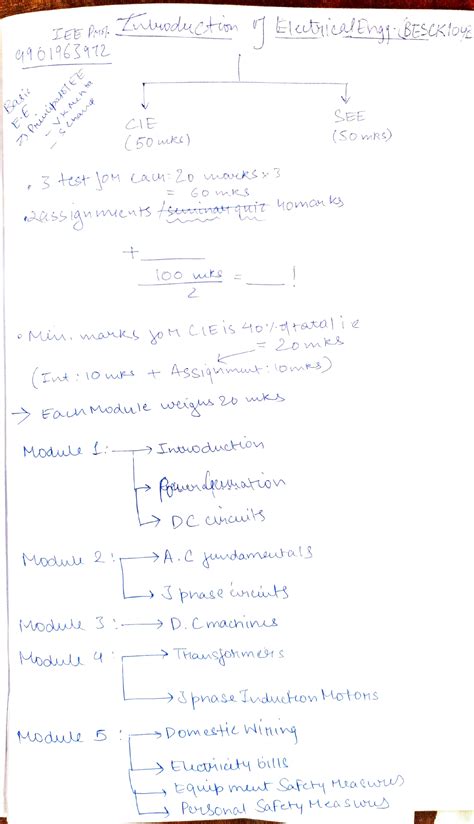 IEE Prof. Introduction of Electrical Engg. BESCK104B
9901963972
Basic
E.E
→ Principles of EE
- V K Mehta
- S Chand
CIE
SEE
(50 mks)
(50 mks)
• 3 test for each: 20 marks x 3
= 60 mks
• 2 assignments / seminar quiz 40 marks
+
100 mks = ___ !
2
• Min. marks for CIE is 40% of total i.e
= 20 mks
(Int: 10 mks + Assignment: 10 mks)
→ Each Module weighs 20 mks
Module 1: → Introduction
→ Power Generation
→ DC circuits
Module 2: → A.C fundamentals
→ 3 phase circuits
Module 3: → D.C machines
Module 4: → Transformers
→ 3 phase Induction Motors
Module 5: → Domestic Wiring
→ Electricity bills
→ Equipment Safety Measures
→ Personal Safety Measures